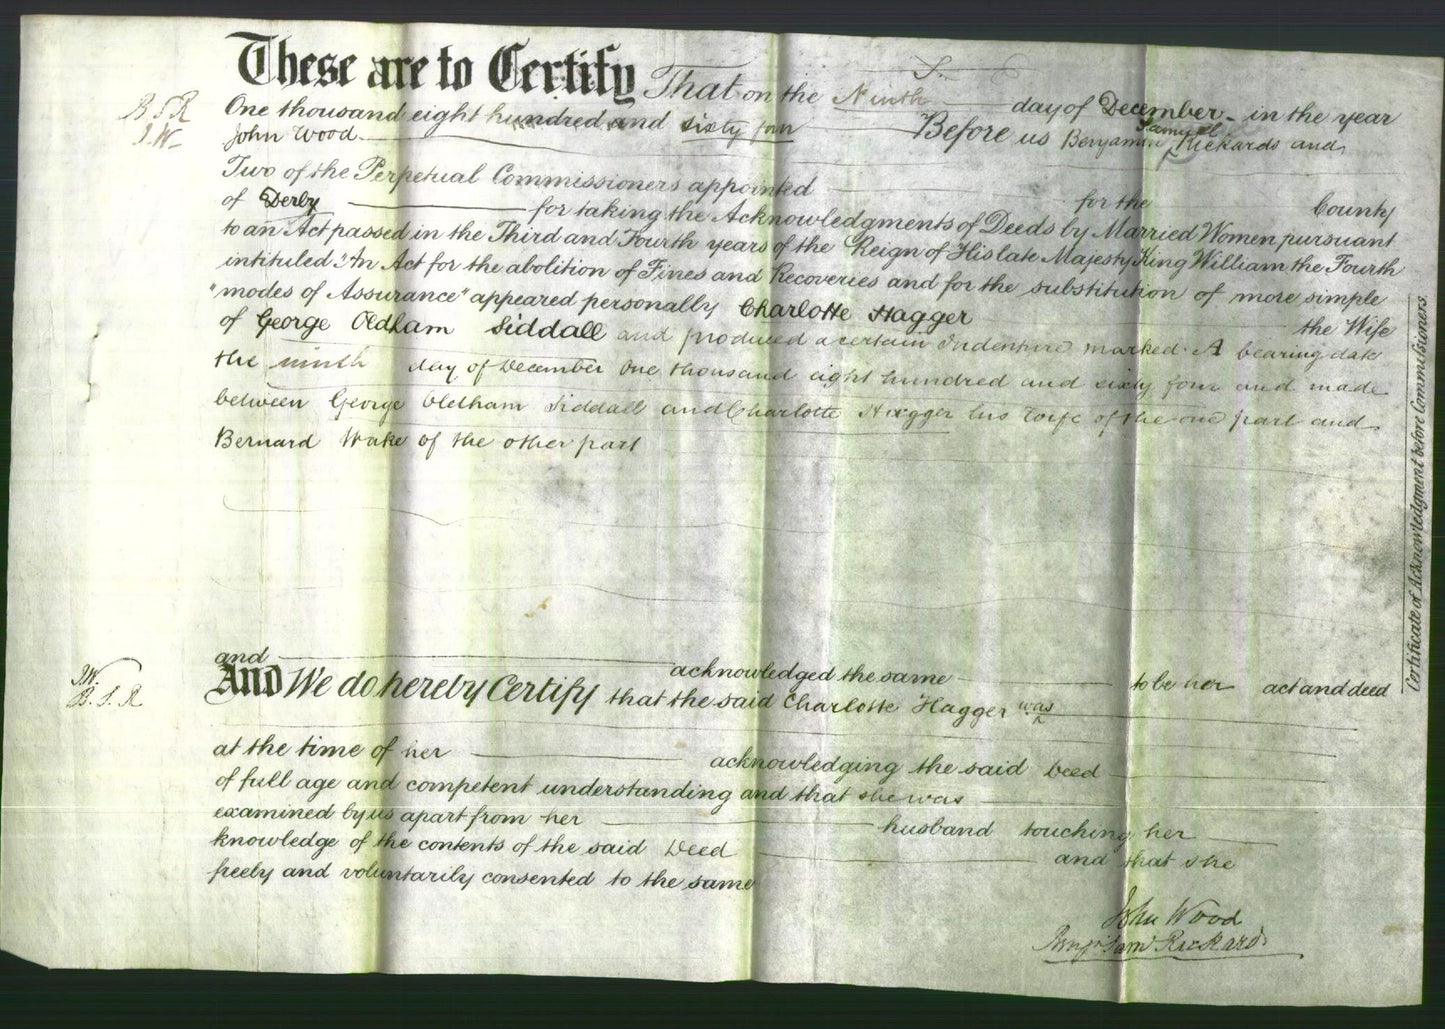 S.
These are to Certify That on the Ninth day of December in the year
B S R
One thousand eight hundred and sixty four Before us Benjamin Samuel Rickards and
J. W.
John Wood
Two of the Perpetual Commissioners appointed for the County
of Derby for taking the Acknowledgments of Deeds by Married Women pursuant
to an Act passed in the Third and Fourth years of the Reign of His late Majesty King William the Fourth
intituled "An Act for the abolition of Fines and Recoveries and for the substitution of more simple
"modes of Assurance" appeared personally Charlotte Hagger the Wife
of George Oldham Siddall and produced a certain Indenture marked A bearing date
the ninth day of December One thousand eight hundred and sixty four and made
between George Oldham Siddall and Charlotte Hagger his Wife of the one part and
Bernard Wake of the other part
and acknowledged the same to be her act and deed
J.W.
B. S. R
AND We do hereby Certify that the said Charlotte Hagger was
at the time of her acknowledging the said Deed
of full age and competent understanding and that she was
examined by us apart from her husband touching her
knowledge of the contents of the said Deed and that she
freely and voluntarily consented to the same
John Wood
Benjn. Saml Rickards
Certificate of Acknowledgment before Commissioners.